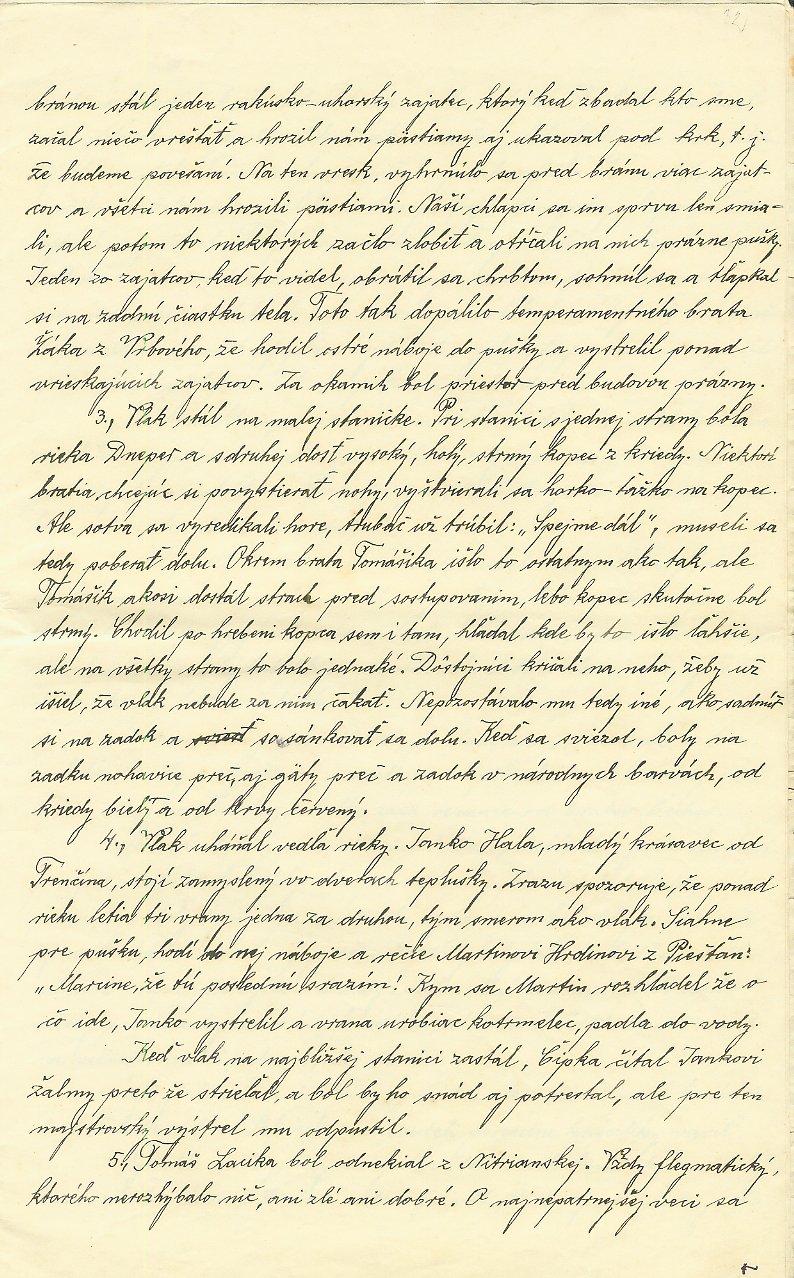 bránou stál jeden rakúsko-uhorský zajatec, ktorý keď zbadal kto sme,
začal niečo vreštať a hrozil nám pästiamy aj ukazoval pod krk, t. j.
že budeme povešaní. Na ten vresk, vyhrnulo sa pred bránu viac zajat-
cov a všetci nám hrozili pästiami. Naši chlapci sa im sprvu len smia-
li, ale potom to niektorých začlo zlobiť a otŕčali na nich prázne pušky.
Jeden zo zajatcov, keď to videl, obrátil sa chrbtom, sohnul sa a tľapkal
si na zadnú čiastku tela. Toto tak dopálilo temperamentného brata
Žáka z Vrbového, že hodil ostré náboje do pušky a vystrelil ponad
vrieskajúcich zajatcov. Za okamih bol priestor pred budovou prázny.
3., Vlak stál na malej staničke. Pri stanici s jednej strany bola
rieka Dneper a sdruhej dosť vysoký, holý, strmý kopec z kriedy. Niektorí
bratia chcejúc si povystierať nohy, vyštvierali sa horko-ťažko na kopec.
Ale sotva sa vyredikali hore, trubač už trúbil: „Spejme dál", museli sa
tedy poberať dolu. Okrem brata Tomášika išlo to ostatnym ako tak, ale
Tomášik akosi dostál strach pred sostupovaním, lebo kopec skutočne bol
strmý. Chodil po hrebeni kopca sem i tam, hľadal kde by to išlo ľahšie,
ale na všetky strany to bolo jednaké. Dôstojníci kričali na neho, žeby už
išiel, že vlak nebude za ním čakať. Nepozostávalo mu tedy iné, ako sadnúť
si na zadok a sviesť so sánkovať sa dolu. Keď sa sviezol, boly na
zadku nohavice preč, aj gäty preč a zadok v národnych barvách, od
kriedy bielý a od krvy červený.
4., Vlak uháňal vedľa rieky. Janko Hala, mladý krásavec od
Trenčína, stojí zamyslený vo dverach teplušky. Zrazu spozoruje, že ponad
rieku letia tri vrany jedna za druhou, tým smerom ako vlak. Siahne
pre pušku, hodí do nej náboje a rečie Martinovi Hrdinovi z Piešťan:
„Marcine, že tú poslednú srazím! Kym sa Martin rozhládel že o
čo ide, Janko vystrelil a vrana urobiac kotrmelec, padla do vody.
Keď vlak na najbližšej stanici zastál, Čipka čítal Jankovi
žalmy preto že strieľal, a bol by ho snáď aj potrestal, ale pre ten
majstrovský výstrel mu odpustil.
5., Tomáš Lacika bol odnekiaľ z Nitrianskej. Vždy flegmatický,
ktorého nerozhýbalo nič, ani zlé ani dobré. O najnepatrnejšej veci sa